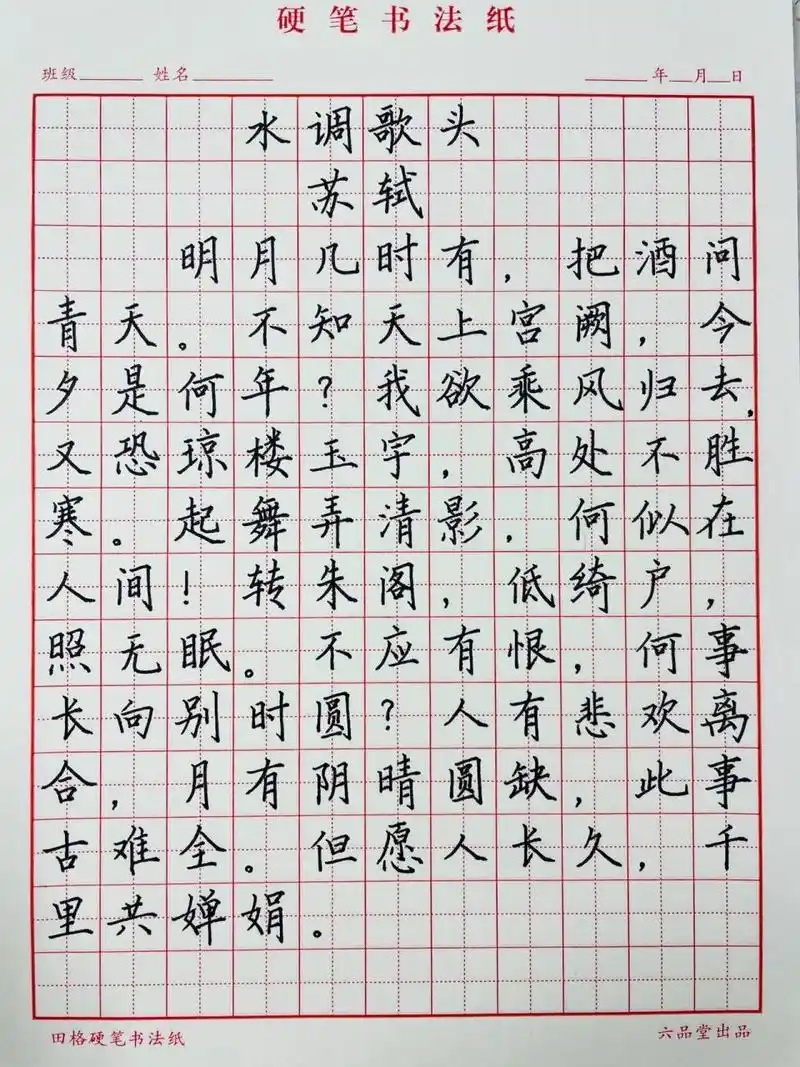 硬笔书法纸
班级______ 姓名________ ______年__月__日
水调歌头
苏轼
明月几时有，把酒问
青天。不知天上宫阙，今
夕是何年？我欲乘风归去，
又恐琼楼玉宇，高处不胜
寒。起舞弄清影，何似在
人间！转朱阁，低绮户，
照无眠。不应有恨，何事
长向别时圆？人有悲欢离
合，月有阴晴圆缺，此事
古难全。但愿人长久，千
里共婵娟。
田格硬笔书法纸 六品堂出品